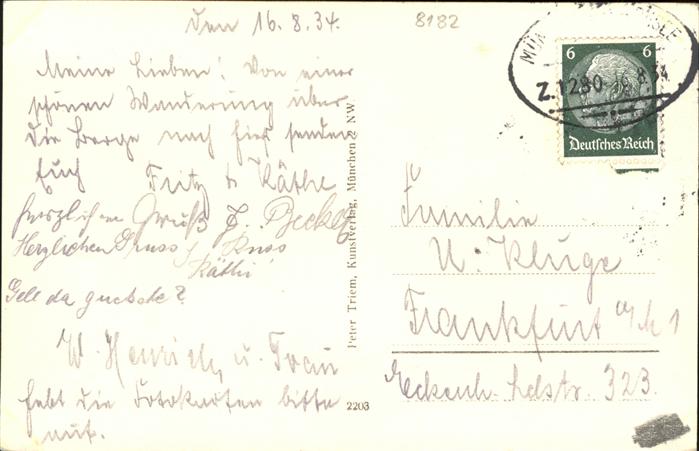 den 16.8.34.
8182
Meine Lieben! Von einer
schönen Wanderung über
die Berge nach hier senden
Euch Fritz & Käthe
herzlichen Gruß E. Becker
Herzlichen Gruss Kuss
Käthi
Gell da guckste?
W. Henrich u. Frau
hebt die Fotokarten bitte
auf.
Peter Triem, Kunstverlag, München 2 NW
2203
6 6
Deutsches Reich
Z.1280 16.8.34
Familie
Kluge
Frankfurt a/M 1
Eckenh. Ldstr. 323.